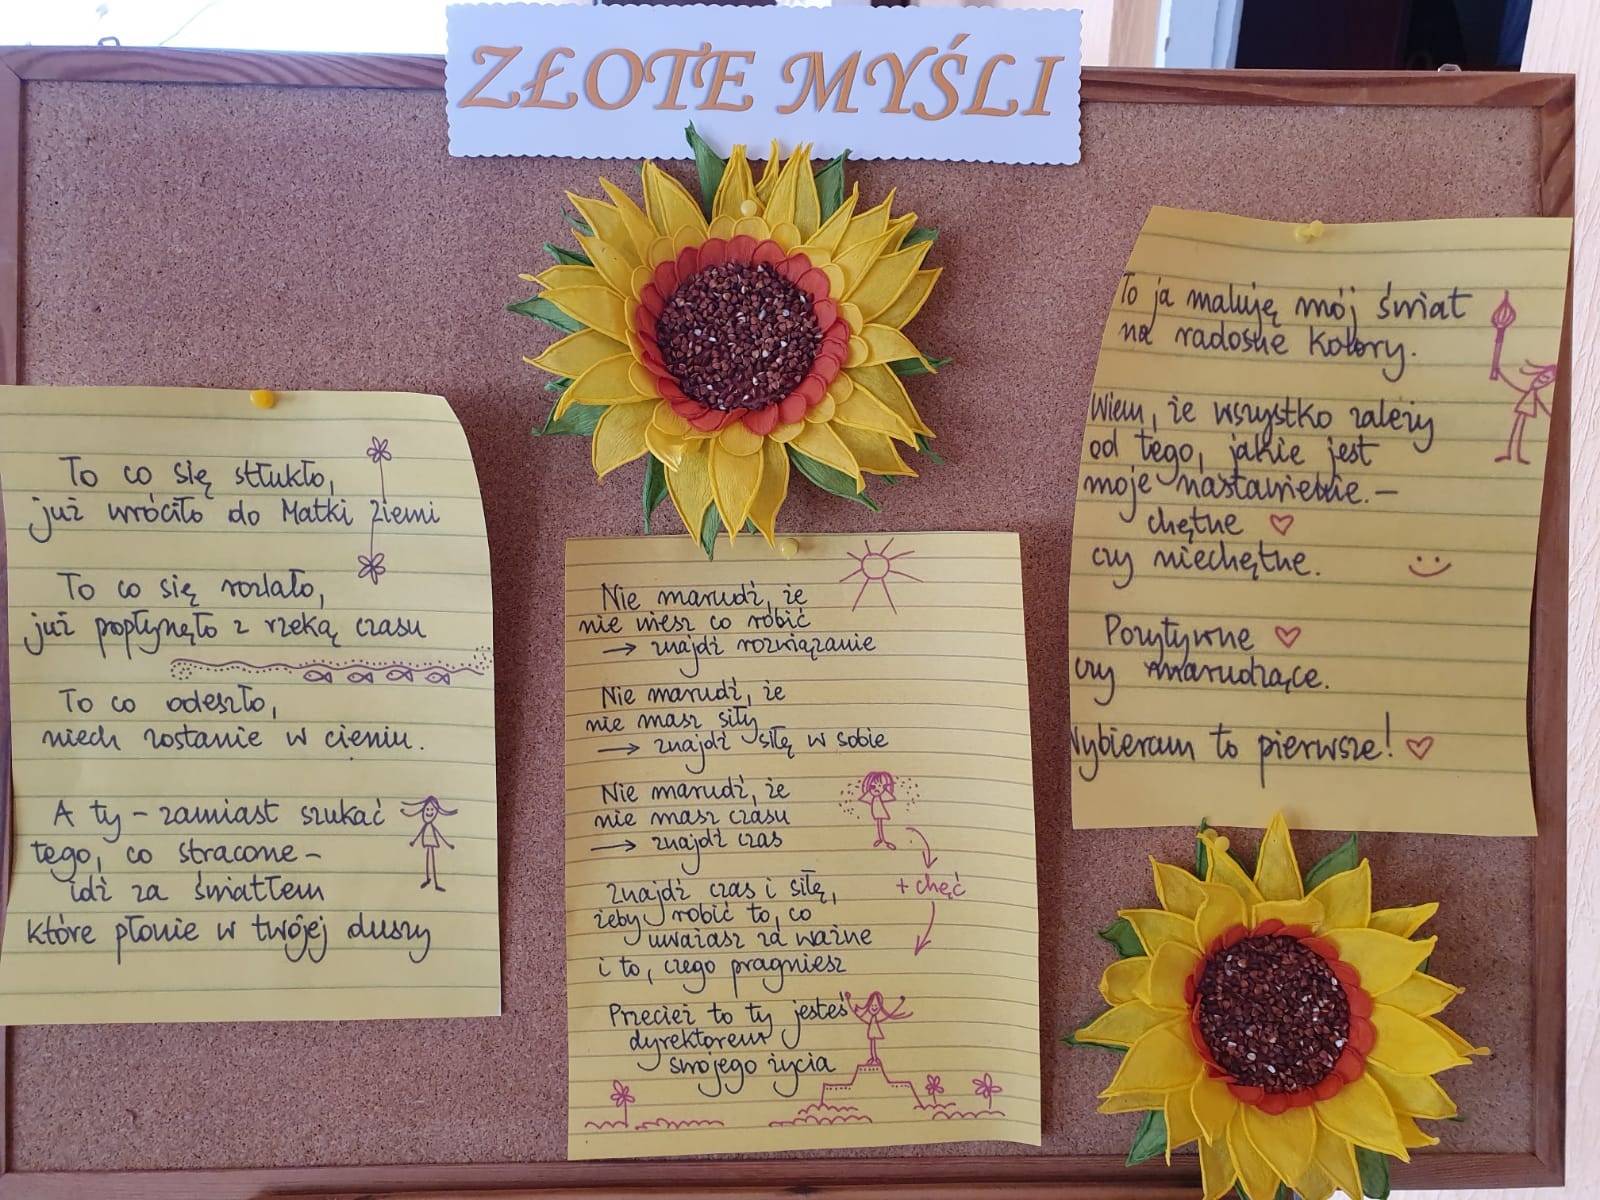 ZŁOTE MYŚLI
To co się stłukło,
już wróciło do Matki Ziemi
To co się rozlało,
już popłynęło z rzeką czasu
To co odeszło,
niech zostanie w cieniu.
A ty – zamiast szukać
tego, co stracone –
idź za światłem
które płonie w twojej duszy
Nie marudź, że
nie wiesz co robić
→ znajdź rozwiązanie
Nie marudź, że
nie masz siły
→ znajdź siłę w sobie
Nie marudź, że
nie masz czasu
→ znajdź czas
Znajdź czas i siłę,
żeby robić to, co
uważasz za ważne
i to, czego pragniesz
+ chęć
Przecież to ty jesteś
dyrektorem
swojego życia
To ja maluję mój świat
na radosne kolory.
Wiem, że wszystko zależy
od tego, jakie jest
moje nastawienie. –
chętne ♡
czy niechętne.
Pozytywne ♡
czy marudzące.
Wybieram to pierwsze! ♡